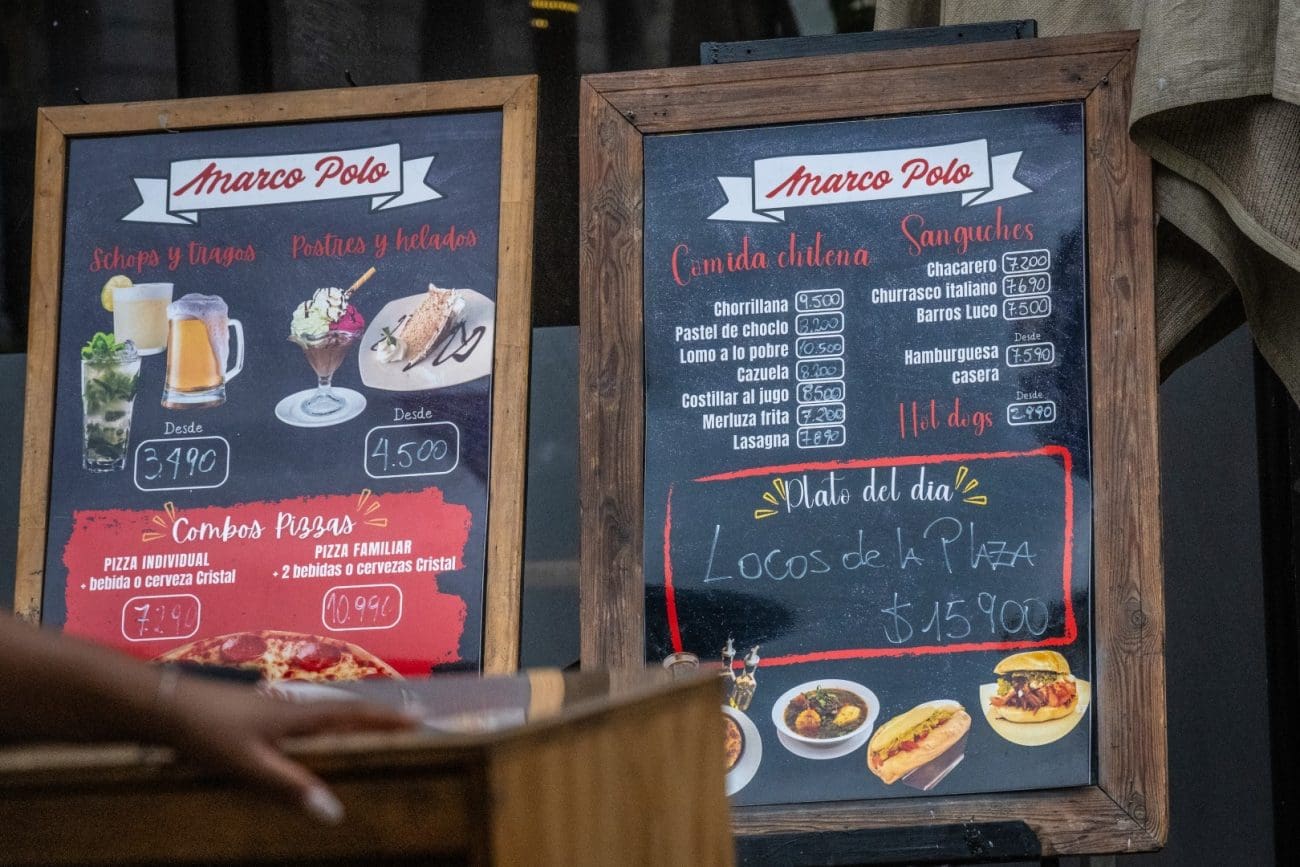 Marco Polo
Schops y tragos
Postres y helados
Desde
3.490
Desde
4.500
Combos Pizzas
PIZZA INDIVIDUAL
+ bebida o cerveza Cristal
7.290
PIZZA FAMILIAR
+ 2 bebidas o cervezas Cristal
10.990
Marco Polo
Comida chilena
Chorrillana 9.500
Pastel de choclo
Lomo a lo pobre 10.500
Cazuela 8.200
Costillar al jugo 8.500
Merluza frita 7.200
Lasagna 7.890
Sanguches
Chacarero 7.200
Churrasco italiano 7.690
Barros Luco 7.500
Desde
Hamburguesa 7.590
casera
Desde
Hot dogs 2.990
Plato del dia
Locos de la Plaza
$15.900